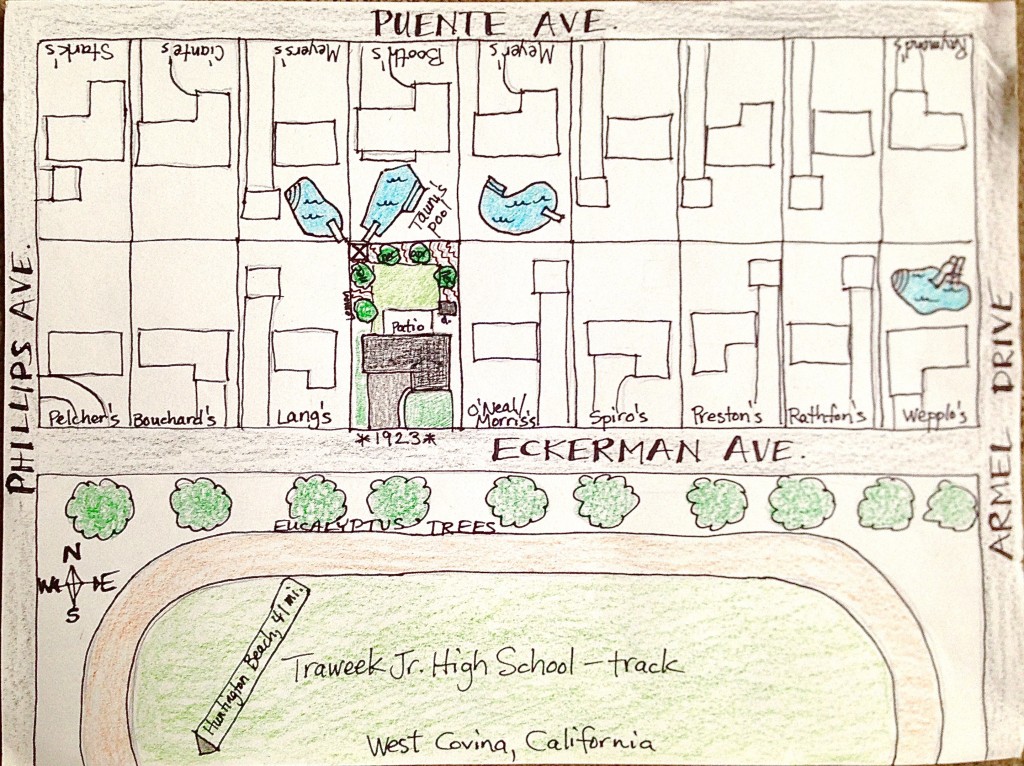 PUENTE AVE.
Stark's
Ciante's
Meyers's
Booth's
Meyer's
Raymond's
PHILLIPS AVE.
ARMEL DRIVE
Tauny's
pool
apr
Lemon
Patio
Pelcher's
Bouchard's
Lang's
O'Neal/
Morris's
Spiro's
Preston's
Rathfon's
Wepplo's
*1923*
ECKERMAN AVE.
EUCALYPTUS TREES
N
W E
S
Huntington Beach, 41 mi.
Traweek Jr. High School - track
West Covina, California